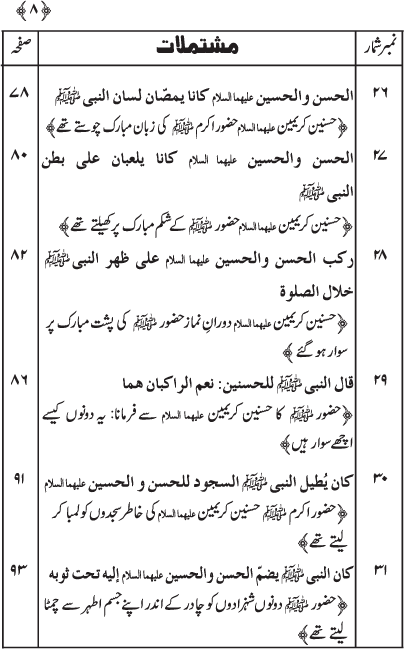 ﴿۸﴾
نمبر شمار مشتملات صفحہ
۲۶ الحسن والحسين عليهما السلام كانا يمصّان لسان النبی ﷺ ۷۸
﴿حسنین کریمین علیہما السلام حضور اکرم ﷺ کی زبان مبارک چوستے تھے﴾
۲۷ الحسن والحسين عليهما السلام كانا يلعبان علی بطن ۸۰
النبی ﷺ
﴿حسنین کریمین علیہما السلام حضور ﷺ کے شکم مبارک پر کھیلتے تھے﴾
۲۸ ركب الحسن والحسين عليهما السلام علی ظهر النبی ﷺ ۸۲
خلال الصلوة
﴿حسنین کریمین علیہما السلام دورانِ نماز حضور ﷺ کی پشت مبارک پر
سوار ہو گئے﴾
۲۹ قال النبی ﷺ للحسنين: نعم الراكبان هما ۸۶
﴿حضور ﷺ کا حسنین کریمین علیہما السلام سے فرمانا: یہ دونوں کیسے
اچھے سوار ہیں﴾
۳۰ كان يُطيل النبی ﷺ السجود للحسن و الحسين عليهما السلام ۹۱
﴿حضور اکرم ﷺ حسنین کریمین علیہما السلام کی خاطر سجدوں کو لمبا کر
لیتے تھے﴾
۳۱ كان النبی ﷺ يضمّ الحسن والحسين عليهما السلام إليه تحت ثوبه ۹۳
﴿حضور ﷺ دونوں شہزادوں کو چادر کے اندر اپنے جسم اطہر سے چمٹا
لیتے تھے﴾